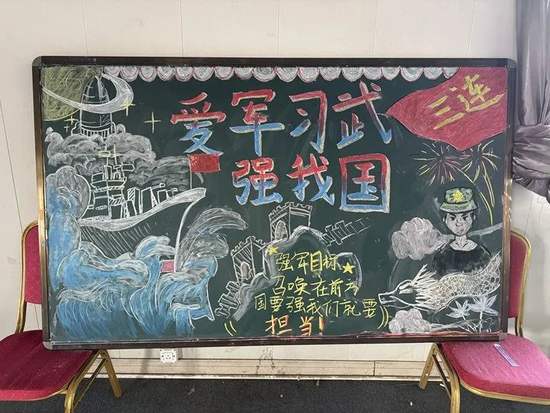 爱军习武
强我国
三连
强军目标
号唤在前方
国要强我们就要
担当!